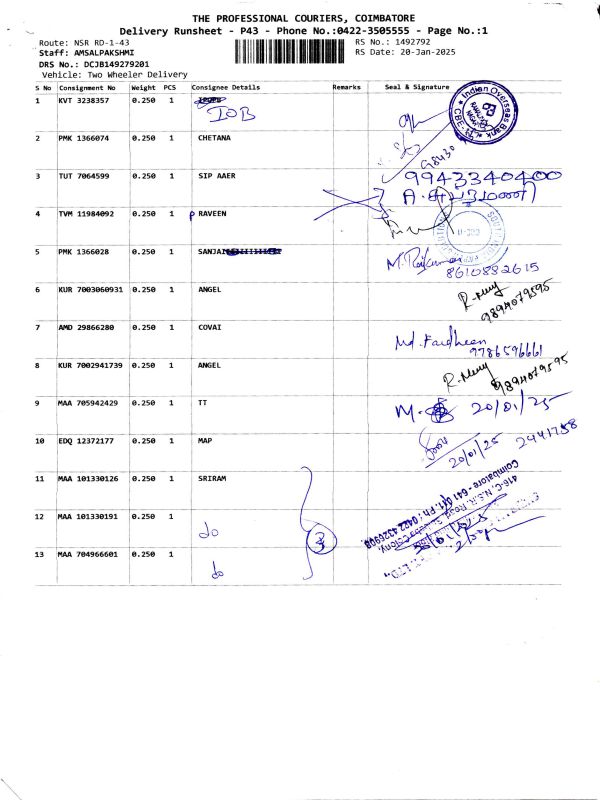 THE PROFESSIONAL COURIERS, COIMBATORE
Delivery Runsheet - P43 - Phone No.:0422-3505555 - Page No.:1
Route: NSR RD-1-43 RS No.: 1492792
Staff: AMSALPAKSHMI RS Date: 20-Jan-2025
DRS No.: DCJB149279201
Vehicle: Two Wheeler Delivery
S No Consignment No Weight PCS Consignee Details Remarks Seal & Signature
1 KVT 3238357 0.250 1 IOB
Indian Overseas Bank
2 PMK 1366074 0.250 1 CHETANA 98430
3 TUT 7064599 0.250 1 SIP AAER 9943340400
4 TVM 11984092 0.250 1 PRAVEEN
5 PMK 1366028 0.250 1 SANJAI M. Rajkumar
8610882615
6 KUR 7003060931 0.250 1 ANGEL 9894079595
7 AMD 29866280 0.250 1 COVAI Md. Fardheen
9786596661
8 KUR 7002941739 0.250 1 ANGEL 9894079595
9 MAA 705942429 0.250 1 TT M. 20/01/25
10 EDQ 12372177 0.250 1 MAP 20/01/25 2441758
11 MAA 101330126 0.250 1 SRIRAM
12 MAA 101330191 0.250 1 do 3
13 MAA 704966601 0.250 1 do
416-C, N.S.R. Road,
Coimbatore - 641 011.